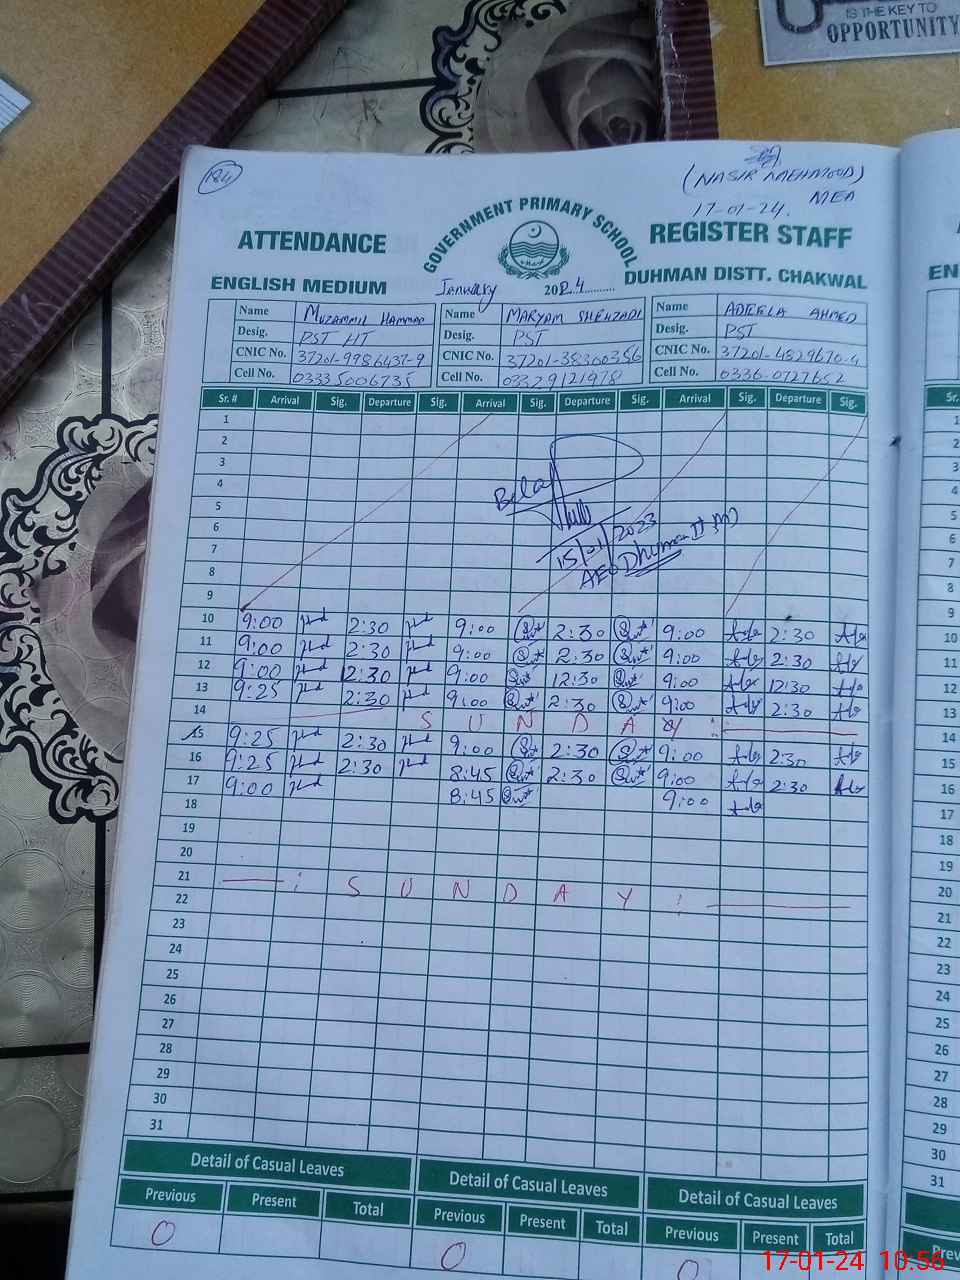 IS THE KEY TO
OPPORTUNITY
184
(NASIR MEHMOOD)
MEA
17-01-24.
GOVERNMENT PRIMARY SCHOOL
ATTENDANCE
REGISTER STAFF
ENGLISH MEDIUM
January 2024
DUHMAN DISTT. CHAKWAL
EN
Name Muzammil Hammad Name MARYAM SHEHZADI Name ADEELA AHMED
Desig. PST HT Desig. PST Desig. PST
CNIC No. 37201-9986437-9 CNIC No. 37201-38300356 CNIC No. 37201-4829670-4
Cell No. 03335006735 Cell No. 03329121978 Cell No. 0336-0727652
Sr. # Arrival Sig. Departure Sig. Arrival Sig. Departure Sig. Arrival Sig. Departure Sig. Sr.
1
2
3
4
5
6
7
8
9
15/01/2023
AEO Dhuman II (M)
10 9:00 2:30 9:00 2:30 9:00 2:30
11 9:00 2:30 9:00 2:30 9:00 2:30
12 9:00 12:30 9:00 12:30 9:00 12:30
13 9:25 2:30 9:00 2:30 9:00 2:30
14 S U N D A Y
15 9:25 2:30 9:00 2:30 9:00 2:30
16 9:25 2:30 8:45 2:30 9:00 2:30
17 9:00 8:45 9:00
18
19
20
21 : S U N D A Y :
22
23
24
25
26
27
28
29
30
31
Detail of Casual Leaves Detail of Casual Leaves Detail of Casual Leaves
Previous Present Total Previous Present Total Previous Present Total
0 0 0
1
2
3
4
5
6
7
8
9
10
11
12
13
14
15
16
17
18
19
20
21
22
23
24
25
26
27
28
29
30
31
Prev
17-01-24 10:56